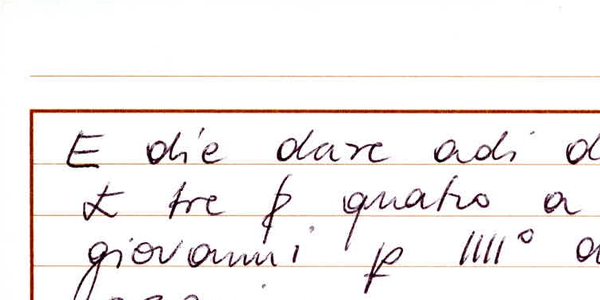 E die dare adi d
£ tre β quatro a
giovanni p IIII° a